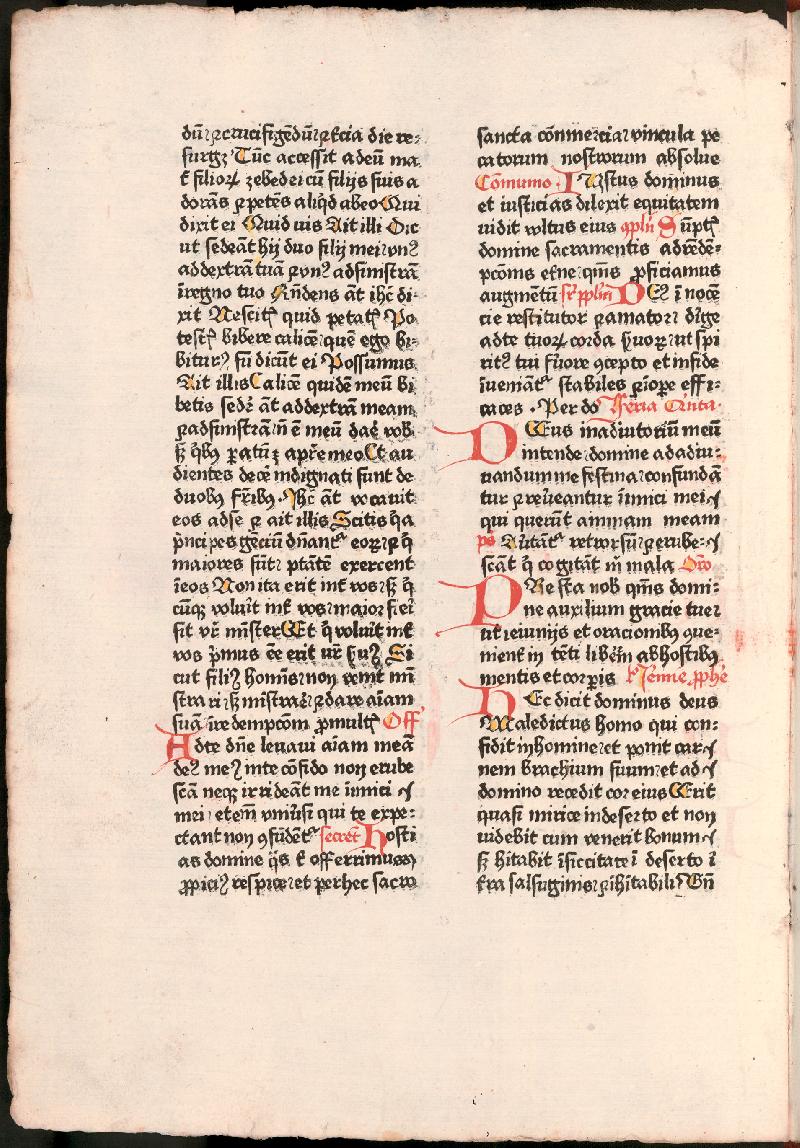 dū⁊ ⁊ crucifigēdū⁊ ⁊ t̄cia die re⸗
surgꝫ Tūc accessit adeū ma
t̄ filioꝝ zebedei cū filijs suis a
dorās ⁊ petēs aliq̇d abeo Qui
dixit ei Quid uis Ait illi Dic
ut sedeāt hij duo filij mei⁊ vn⁹
addextrā tuā ⁊ vn⁹ adsinistrā
ī regno tuo Rn̄dens āt ih̄c di⸗
xit Nescitꝭ quid petatꝭ Po
testꝭ bibere calicē quē ego bi⸗
biturꝰ sū dicūt ei Possumus
Ait illis Calicē quidē meū bi
betis sedē āt addextrā meam
⁊ adsinistrā⁊ n̄ ē meū daē vob
sꝫ q̇bꝰ ꝑatū ē apr̄e meo Et au
dientes decē indignati sunt de
duobꝰ fr̄ibꝰ Jh̄c āt vocauit
eos adse ⁊ ait illis Scitis q̄a
p̄ncipes gēciū dn̄ant᷑ eoꝝ ⁊ q̄
maiores sūt⁊ ptātē exercent
ī eos Non ita erit int̄ vos⁊ sꝫ q̄
cūqꝫ voluīt int̄ vos⁊ maior fieī
sit vr̄ mīster Et q̇ voluīt int̄
vos p̄mus ēe erit ur̄ ẜuꝰ Si
cut filiꝰ homīs⁊ non venit mī
strari⁊ sꝫ mīstraē⁊ ⁊ dare aīam
suā ī redempcōm ꝓmultꝭ Off
Adte dn̄e leuaui aīam meā
deꝰ meꝰ inte cōfido non erube
scā neqꝫ irrideāt me īnimici
mei ⁊ etem̄ vniūsi qui te expe⸗
ctant non ꝯfūdēt᷑ secret Hosti
as domine q̄s t̄ offerrimus
ꝓpiciꝰ respice⁊ et per hec sacro
sancta cōmmercia⁊ vincula pe
catorum nostrorum absolue
Cōmuno Iustus dominus
et iusticias dilexit equitatem
uidit vultus eius ꝯplū Sūptꝭ
domine sacramentis adredē⸗
pcōms et̄ne q̄ms ꝓficiamus
augmētū sr̄ pplm̄ DEꝰ īnocē
cie restitutor ⁊ amator⁊ dīge
adte tuoꝝ corda ẜuoꝝ⁊ ut spi
ritꝰ tui fuore ꝯcepto et in fide
īueniāt᷑ stabiles ⁊ iope effi⸗
caces . Per do Feria Qīnta
DEus inadiutoriū meū
intende domine adadiu⸗
uandum me festina⁊ confundā
tur ⁊ reueantur īnimici mei
qui querūt animam meam
p̄s Auertāt᷑ retrorsū ⁊ erube⸗
scāt q̇ cogitāt m̄ mala Oro
PResta nob q̄ms domi⸗
ne auxilium gracie tue⁊
ut ieiunijs et oracionibꝰ ꝯue⸗
nient̄ intēti liberēm̄ abhostibꝰ
mentis et corꝑis Jeīme ꝓphe
HEc dicit dominus deus
Maledictus homo qui con⸗
fidit in homine⁊ et ponit car
nem brachium suum⁊ et ad
domino recedit cor eius Erit
quasi mirice indeserto et non
uidebit cum venerit bonum
sꝫ hitabit īsiccitate ī deserto ī
t̄ra salsuginis⁊ ⁊ īhitabili Bn̄